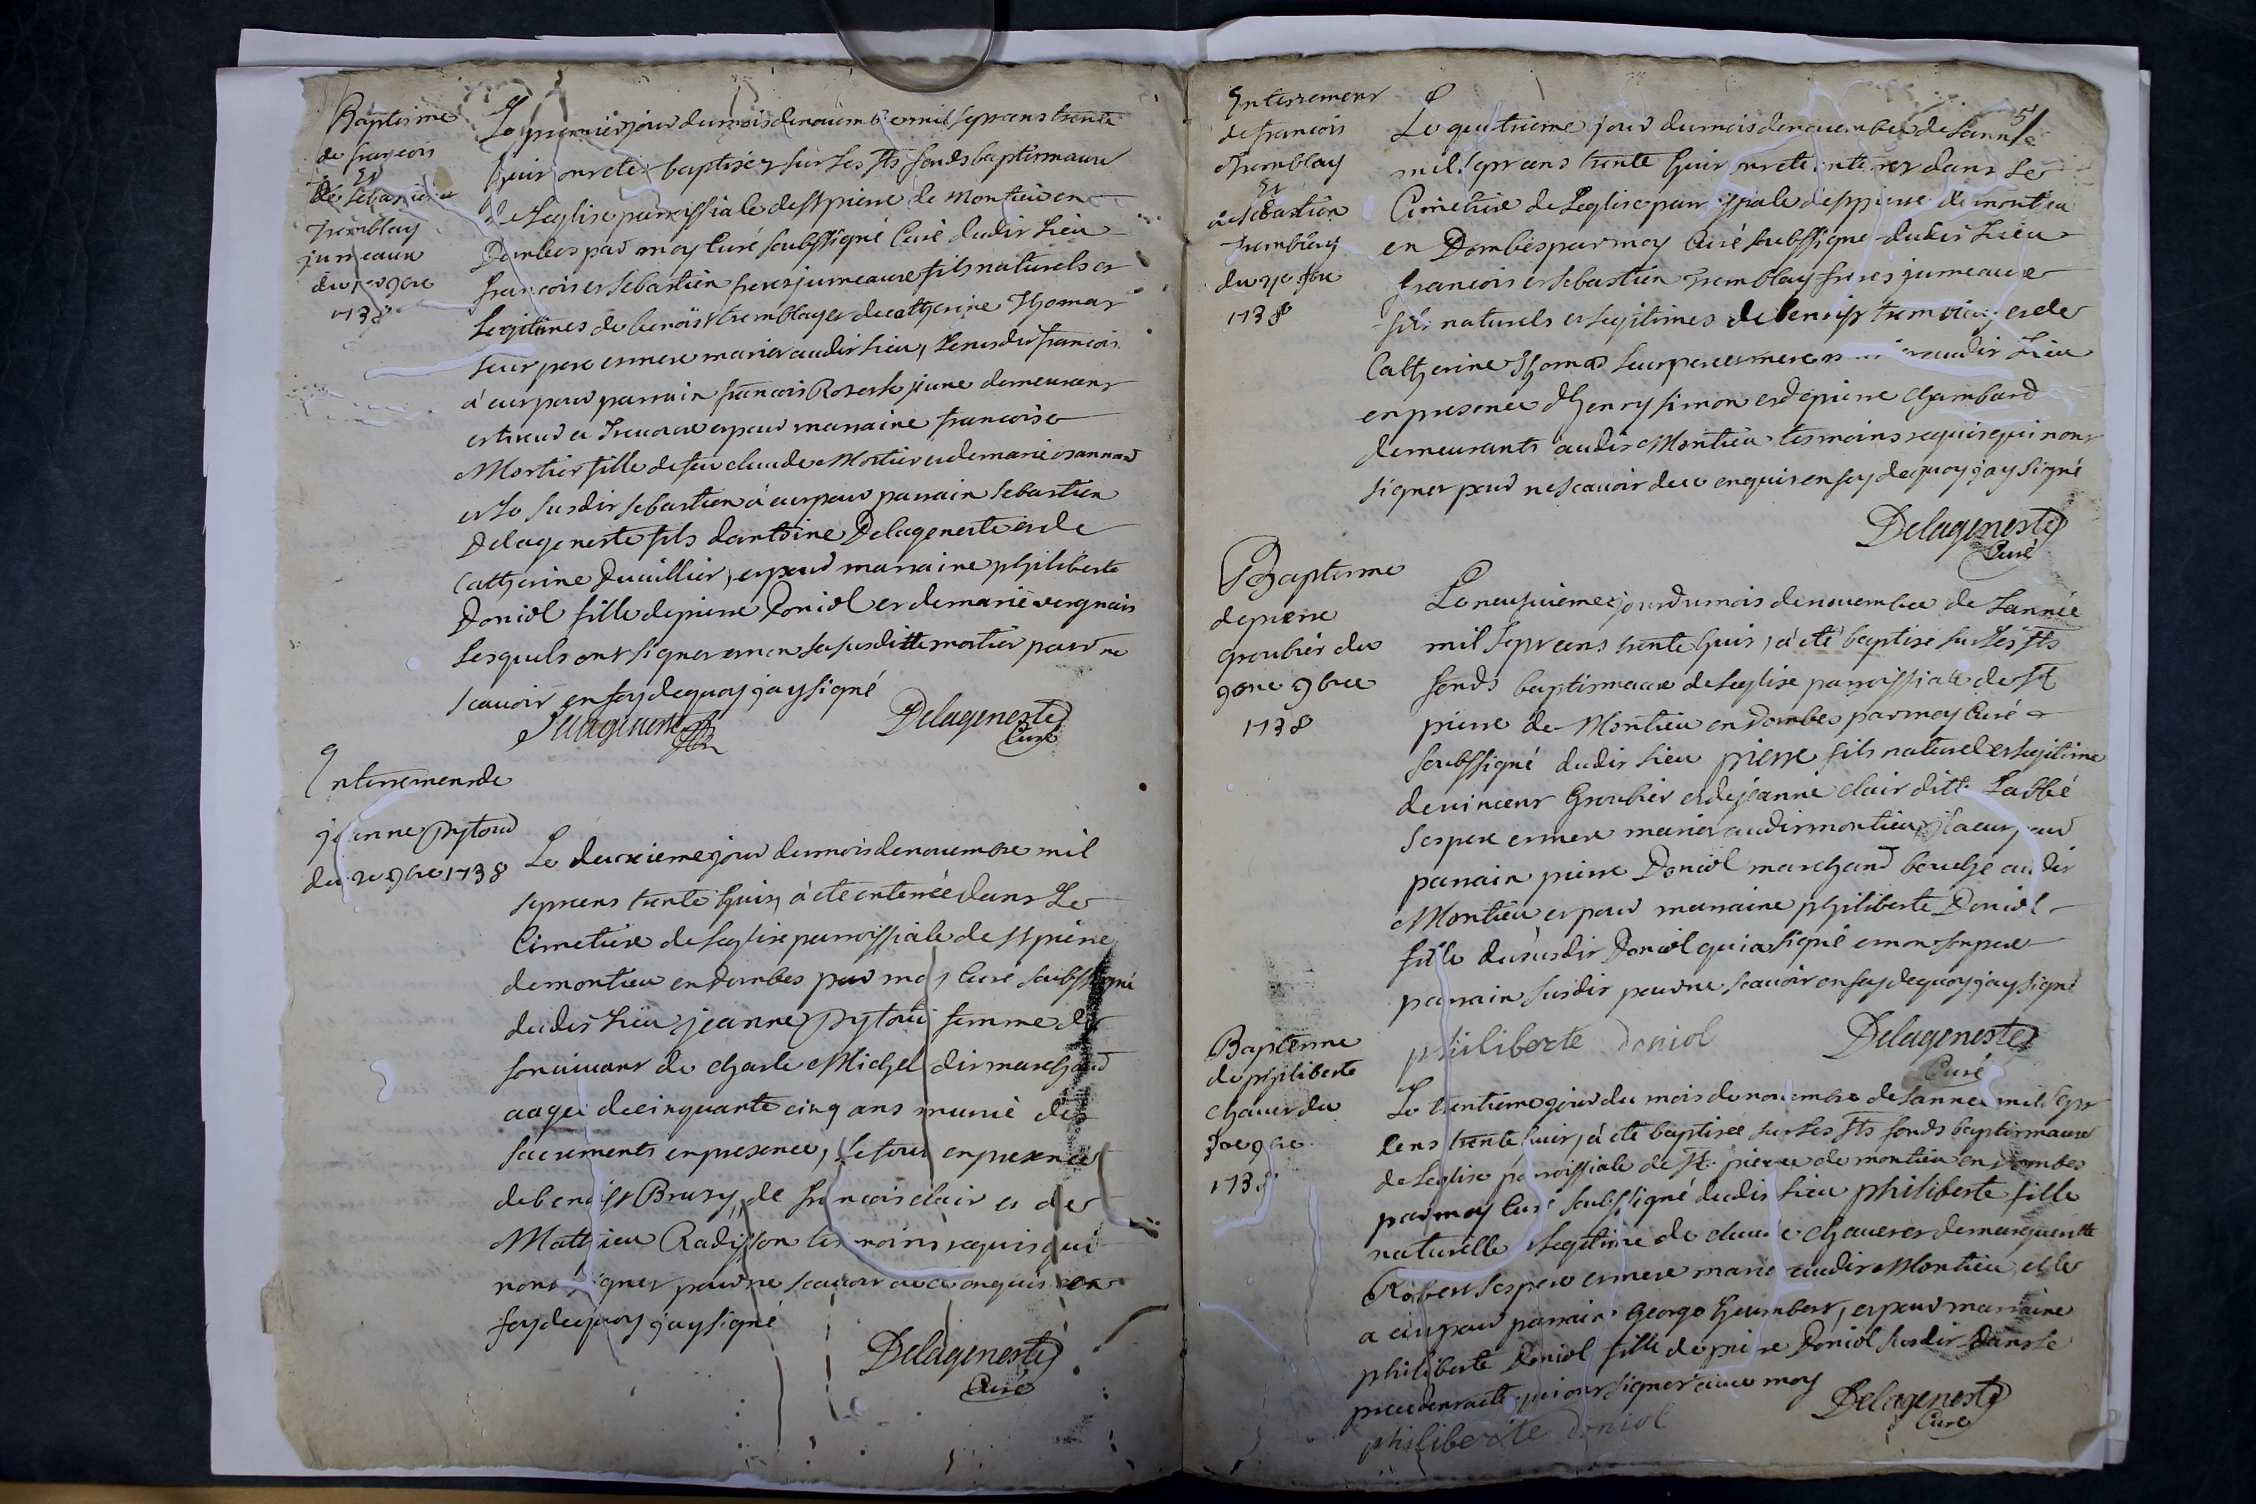 Baptisme
de francois
et
de sebastien
Tremblay
jumeaux
du 1er 9bre
1738
Le premier jour du mois de novembre mil sept cens trente
huit ont eté baptisez sur les sts fonds baptismaux
de leglise paroissiale de st pierre de Montieu en
Dombes par moy Curé soubssigné Curé dudit Lieu
francois et sebastien freres jumeaux fils naturels et
legitimes de benoist tremblay et de catherine Thomas
leur pere et mere mariez audit lieu, le susdit francois
à eu pour parrain francois
et pour marraine francoise
Mortier fille de feu claude Mortier et de marie
et le susdit sebastien à eu pour parrain sebastien
Delageneste fils dantoine Delageneste et de
Catherine Ducillier, et pour marraine philiberte
Doniol fille de pierre Doniol et de marie vergnais
lesquels ont signez et non la susditte mortier pour ne
scauoir en foy de quoy jay signé
Delageneste
Curé
Enterrement de
jeanne Pytoud
du 2e 9bre 1738
Le deuxieme jour du mois de nouembre mil
sept cens trente huit, à eté enterrée dans Le
Cimetiere de leglise paroissiale de st pierre
de montieu en dombes par moy Curé soubssigné
dudit Lieu jeanne Pytoud femme de
son viuant de charle Michel dit marchand
aagée de cinquante cinq ans munie des
sacrements en presence, le tout en presence
de benoist Bruzy, de francois clair et de
Mathieu Radisson tesmoins requis qui
nont signez pour ne scauoir de ce enquis en
foy de quoy jay signé
Delageneste
Curé
51
Enterrement
de francois
Tremblay
et
de sebastien
Tremblay
du 4e 9bre
1738
Le quatrieme jour du mois de nouembre de Lannée
mil sept cens trente huit ont eté enterrez dans Le
Cimetiere de Leglise paroissiale de st pierre de montieu
en Dombes par moy Curé soubssigné dudit Lieu
francois et sebastien Tremblay freres jumeaux
fils naturels et legitimes de benoist tremblay et de
Catherine Thomas leur pere et mere mariez audit Lieu
en presence dhenry simon et de pierre chambard
demeurants audit Montieu tesmoins requis qui nont
signez pour ne scauoir de ce enquis en foy de quoy jay signé
Delageneste
Curé
Baptisme
de pierre
Groubier du
9eme 9bre
1738
Le neufuieme jour du mois de nouembre de Lannée
mil sept cens trente huit, à eté baptisé sur Les sts
fonds baptismaux de leglise paroissiale de st
pierre de Montieu en Dombes par moy Curé
soubssigné dudit Lieu pierre fils naturel et legitime
de vincent Groubier et de jeanne clair ditt Labbé
ses pere et mere mariez audit montieu, il a eu pour
parrain pierre Doniol marchand bouché audit
Montieu et pour marraine philiberte Doniol
fille du susdit Doniol qui a signé et non son pere
parrain susdit pour ne scauoir en foy de quoy jay signé
philiberte doniol
Delageneste
Curé
Baptesme
de philiberte
Chauet du
30e 9bre
1738
Le trentieme jour du mois de nouembre de Lannée mil sept
cens trente huit, à eté baptisée sur Les sts fonds baptismaux
de Leglise paroissiale de st pierre de montieu en Dombes
par moy Curé soubssigné dudit Lieu philiberte fille
naturelle et legitime de claude chauet et de marguerite
Robert ses pere et mere mariez audit Montieu, elle
a eu pour parrain George humbert, et pour marraine
philiberte Doniol fille de pierre Doniol susdit dans le
precedent acte qui ont signez auec moy
Delageneste
Curé
philiberte doniol